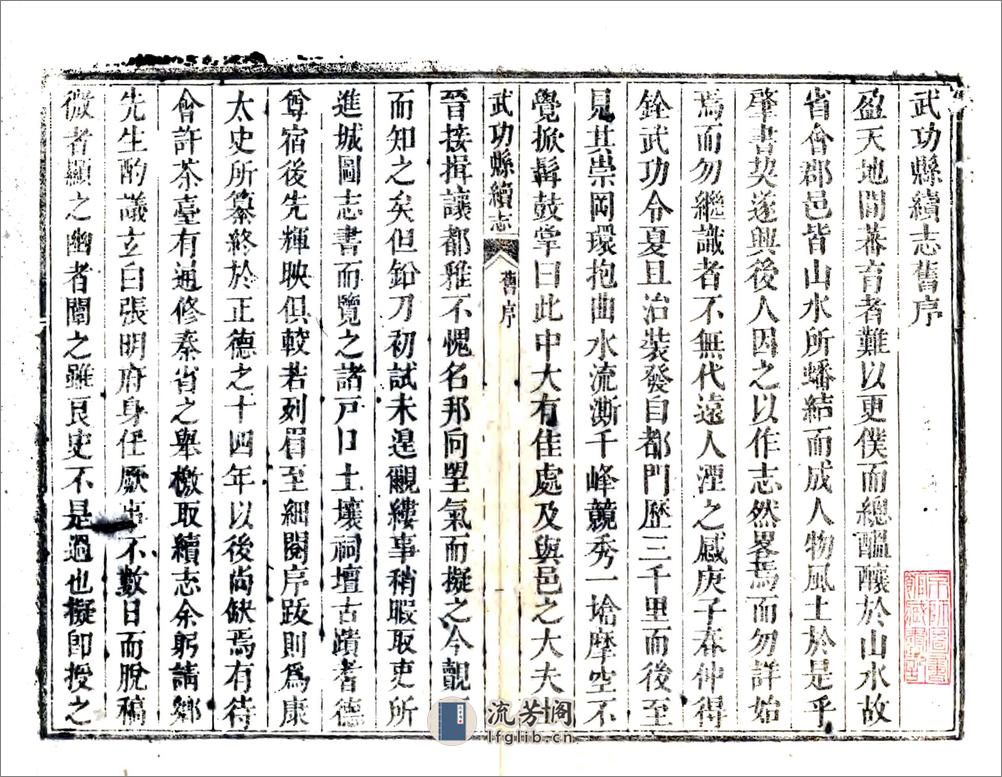 武功縣續志舊序
盈天地間蕃育者難以更僕而總醞釀於山水故
省會郡邑皆山水所蟠結而成人物風土於是乎
肇書契遂興後人因之以作志然畧焉而勿詳始
焉而勿繼識者不無代遠人湮之感庚子春仲得
銓武功令夏且治裝發自都門歷三千里而後至
見其崇岡環抱曲水流澌千峰競秀一塔摩空不
覺掀髯鼓掌曰此中大有佳處及與邑之大夫
武功縣續志
舊序
晉接揖讓都雅不愧名邦向㓨氣而擬之今覩
而知之矣但鉛刀初試未遑覼縷事稍暇取吏所
進城圖志書而覽之諸戶口土壤祠壇古蹟耆德
尊宿後先輝映俱較若列眉至細閱序跋則爲康
太史所纂終於正德之十四年以後尚缺焉有待
會許茶臺有通修秦省之舉檄取續志余躬請鄉
先生酌議玄白張明府身任厥事不數日而脫稿
微者顯之幽者闡之雖良史不是過也擬卽授之
京師圖書
館藏書記
流芳閣
lfglib.cn